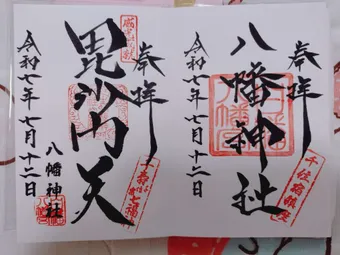 奉拝
八幡神社
千住宿鎮座
令和七年七月十二日
奉拝
毘沙門天
千寿七福
八幡神社
令和七年七月十二日